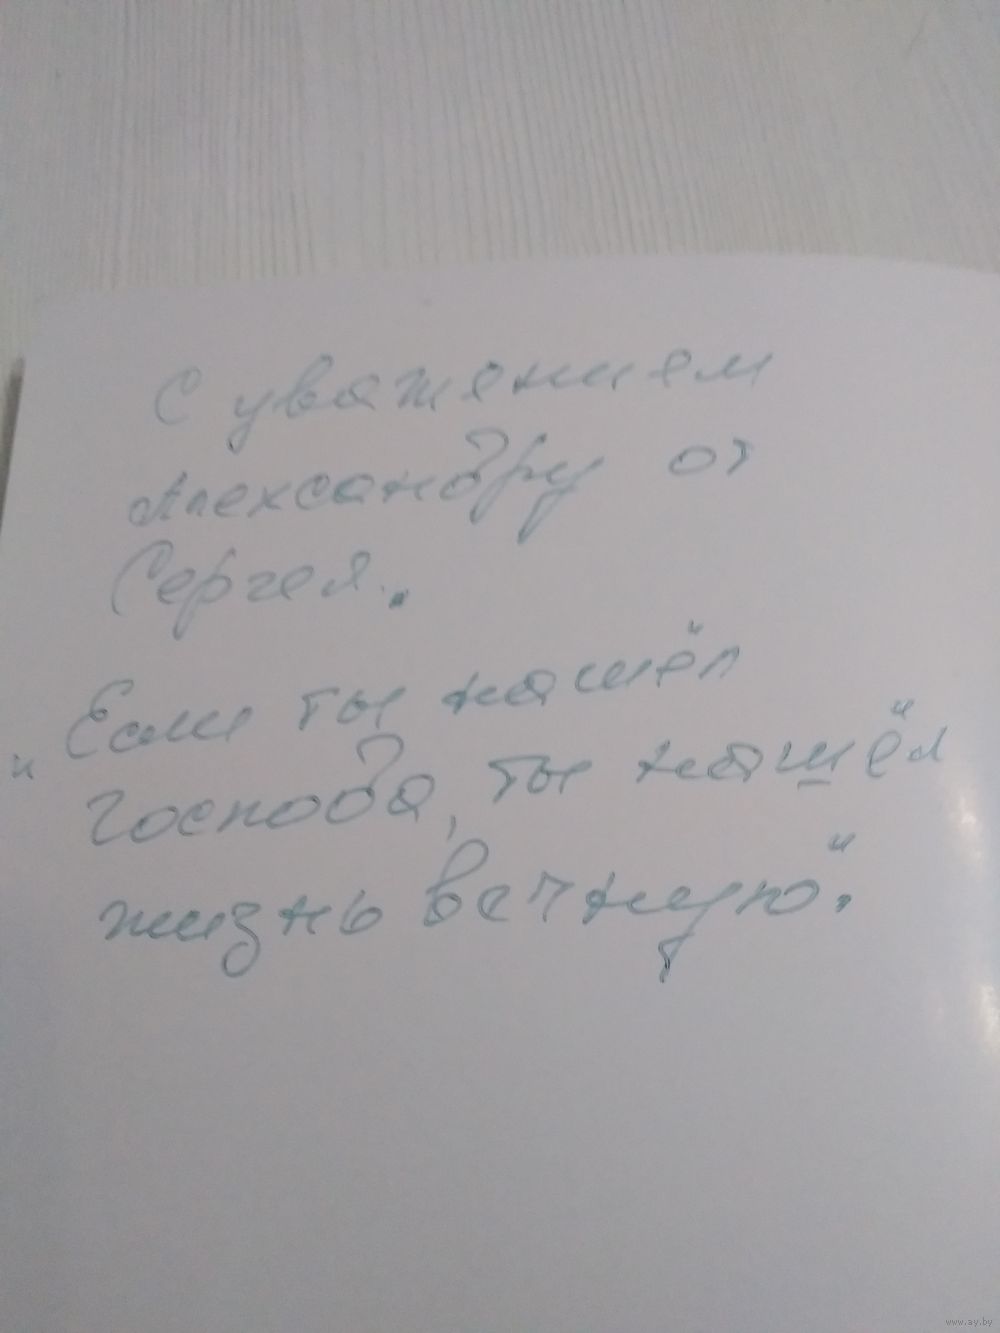 С уважением
Александру от
Сергея.
"Если ты нашёл
Господа, ты нашёл
жизнь вечную".
www.ay.by